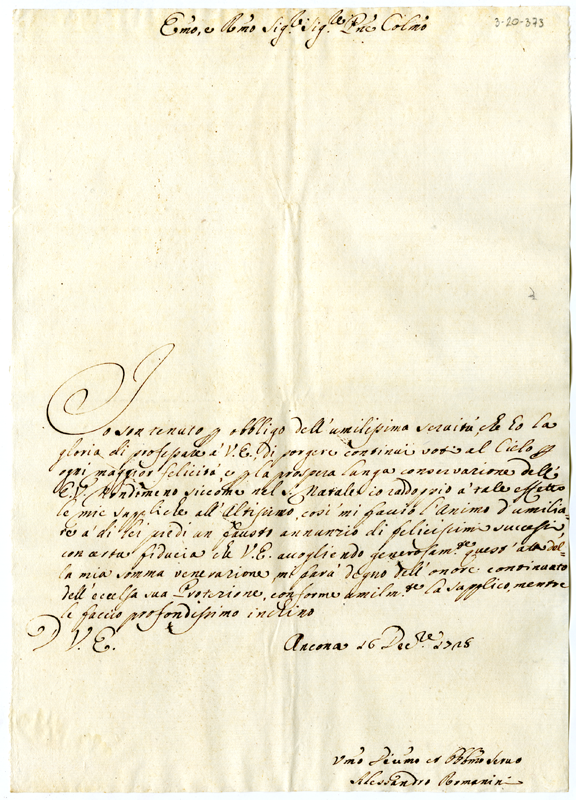 3-20-373
Emo, e Rmo Sig.r Sig.r Pne Colmo
Io son tenuto p obbligo dell'umilissima servitù, che ho la
gloria di professare à V.E. di porgere continui voti al Cielo p
ogni maggior felicità, e p la prospera lunga conservazione dell'
E.V. Nondimeno siccome nel S. Natale io raddoppio à tale effetto
le mie suppliche all'Altissimo così mi prendo l'Animo d'umilia
re à di lei piedi un fausto annunzio di felicissimi successi
con certa fiducia che V.E. accogliendo generosam.te quest'atto del
la mia somma venerazione mi farà degno dell'onore continuato
dell'eccelsa sua Protezione, conforme umilm.te la supplico, mentre
le faccio profondissimo inchino
D V.E.
Ancona 16 Dec.re 1718
Umo Divmo et Obbmo Servo
Alessandro Romanini